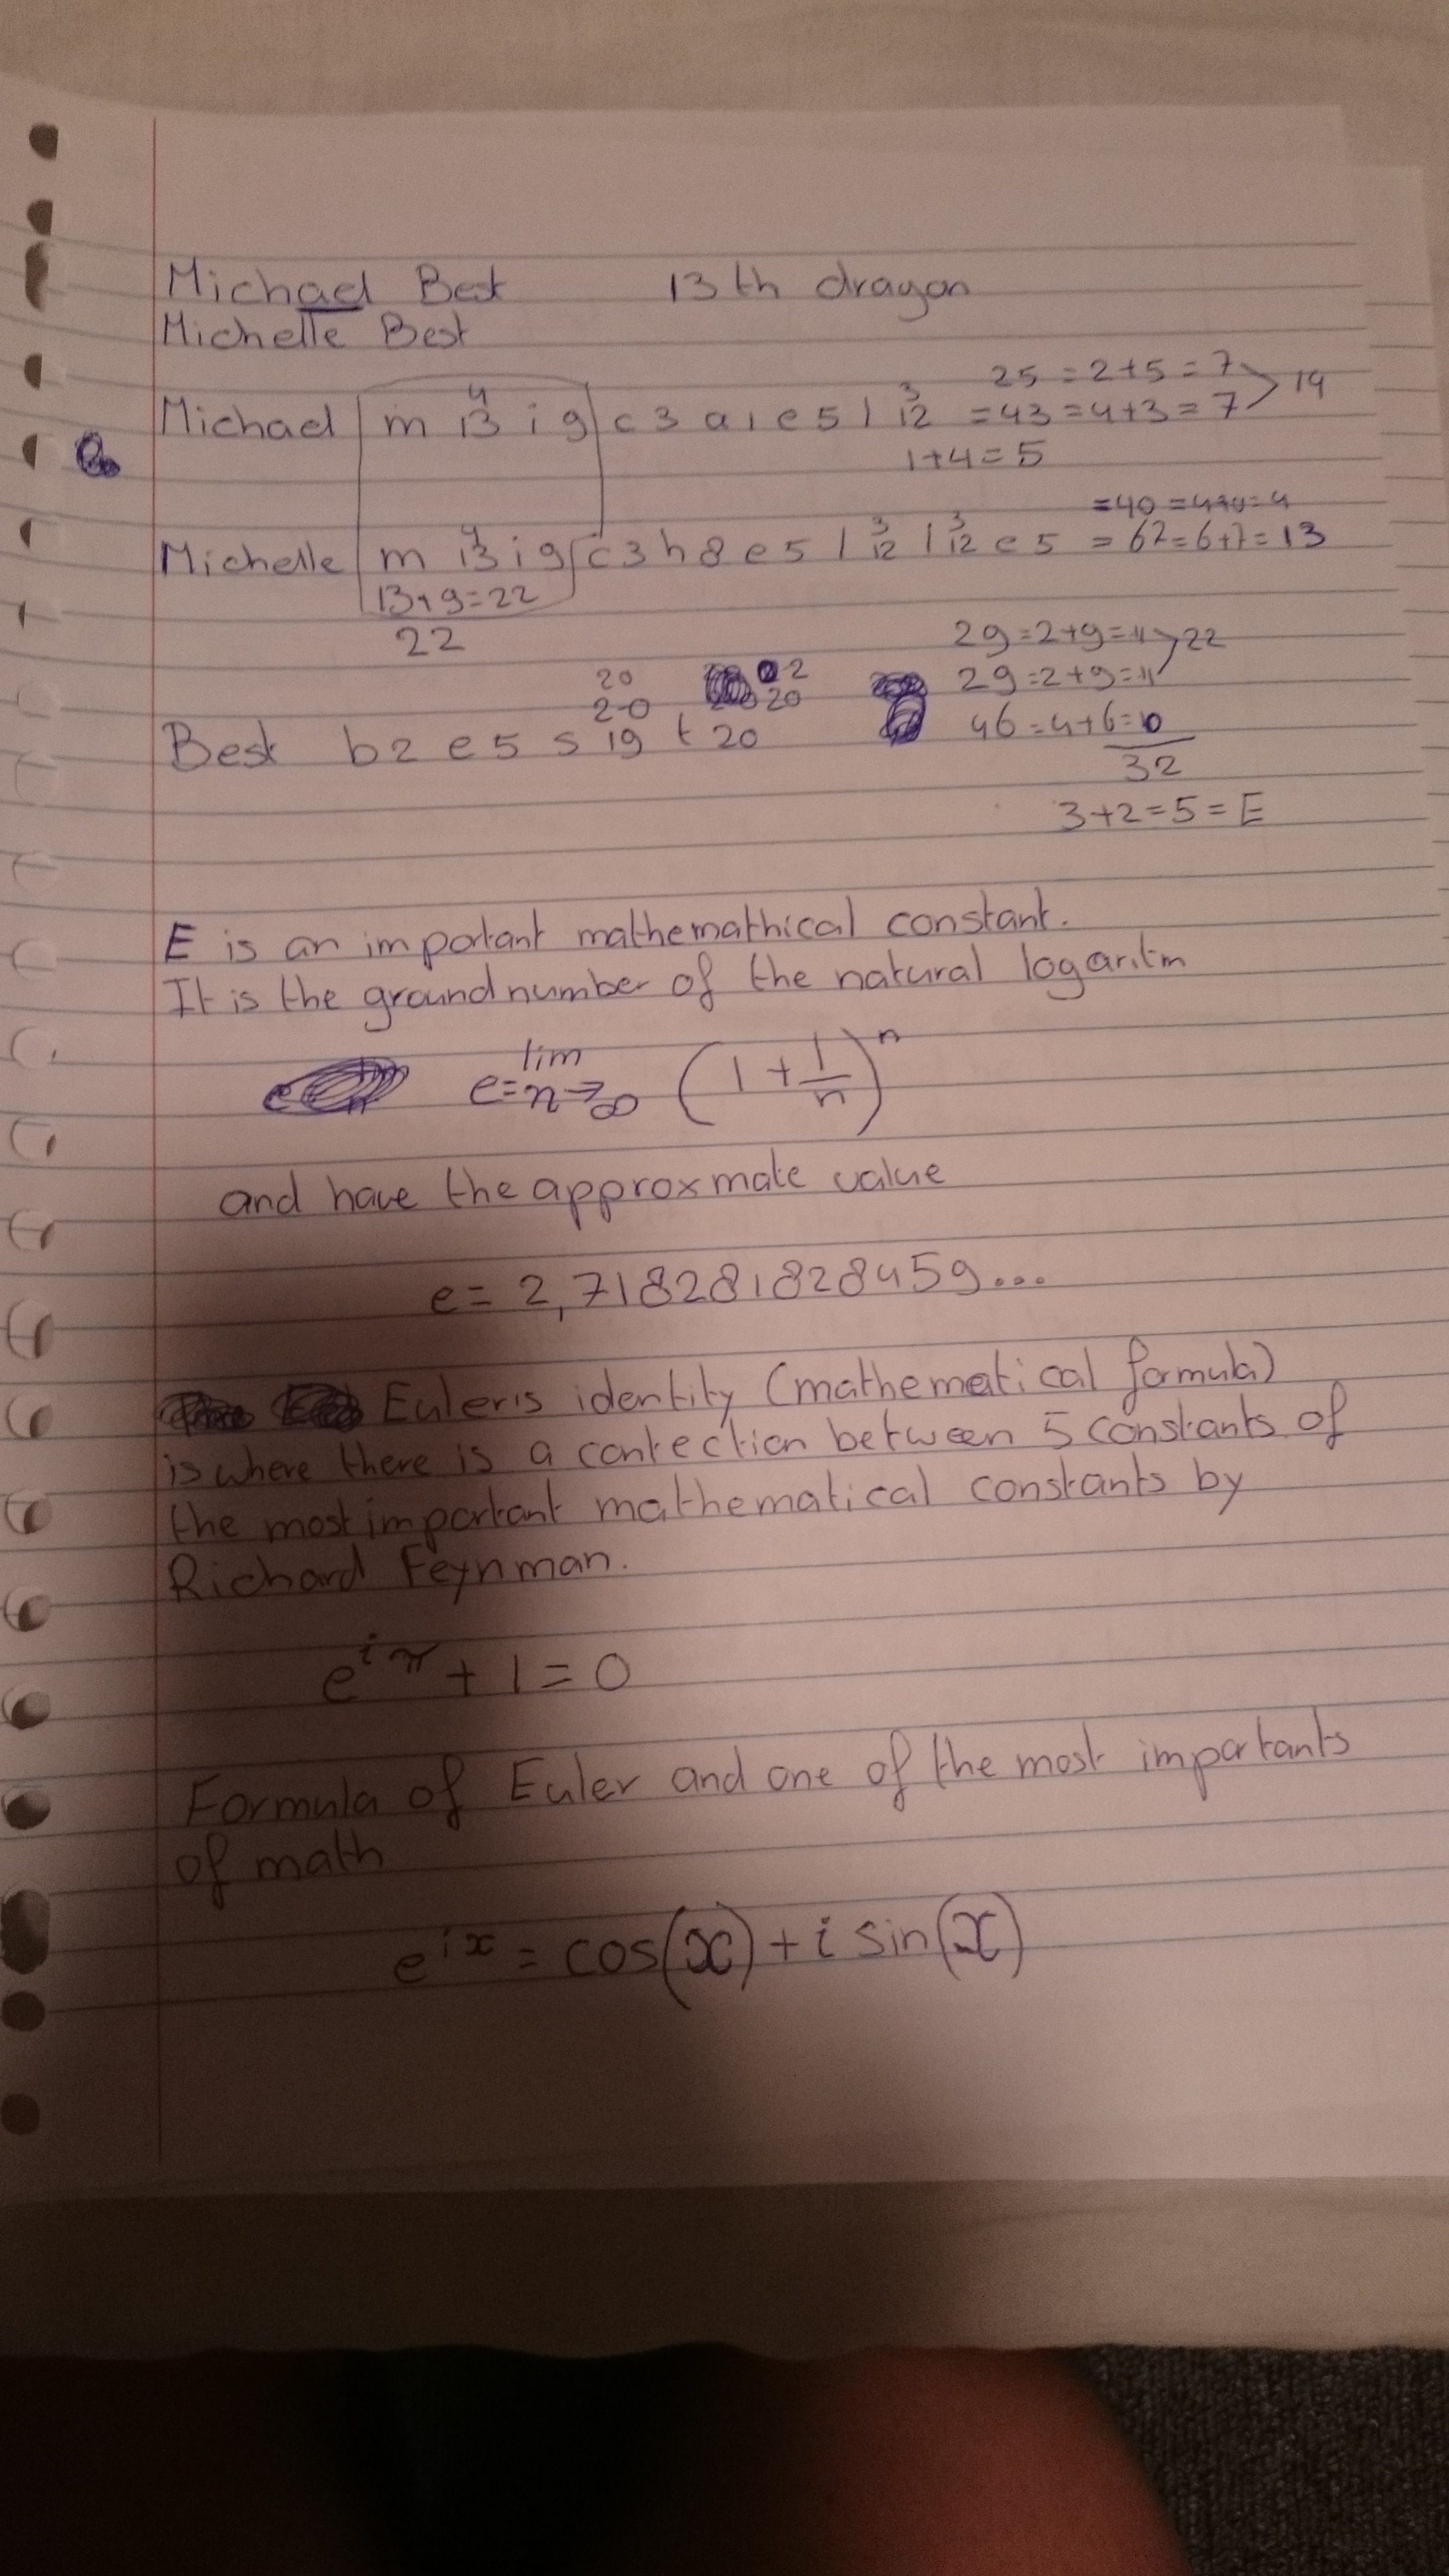 Michael Best 13th dragon
Michelle Best
25 = 2+5 = 7
4 3 > 14
Michael m 13 i 9 c 3 a 1 e 5 l 12 = 43 = 4+3 = 7
1+4=5
=40 =4+0=4
4 3 3
Michelle m 13 i 9 c 3 h 8 e 5 l 12 l 12 e 5 = 67 = 6+7 = 13
13+9=22
22
29=2+9=11 > 22
20 2
29=2+9=11
2-0 20
46=4+6=10
Best b2 e5 s 19 t 20
32
3+2=5=E
E is an important mathemathical constant.
It is the groundnumber of the natural logaritm
lim
e = n→∞ (1 + 1/n)^n
and have the approxmate value
e = 2,718281828459...
Euler's identity (mathematical formula)
is where there is a contection between 5 constants of
the most important mathematical constants by
Richard Feynman.
e^iπ + 1 = 0
Formula of Euler and one of the most importants
of math
e^ix = cos(x) + i sin(x)